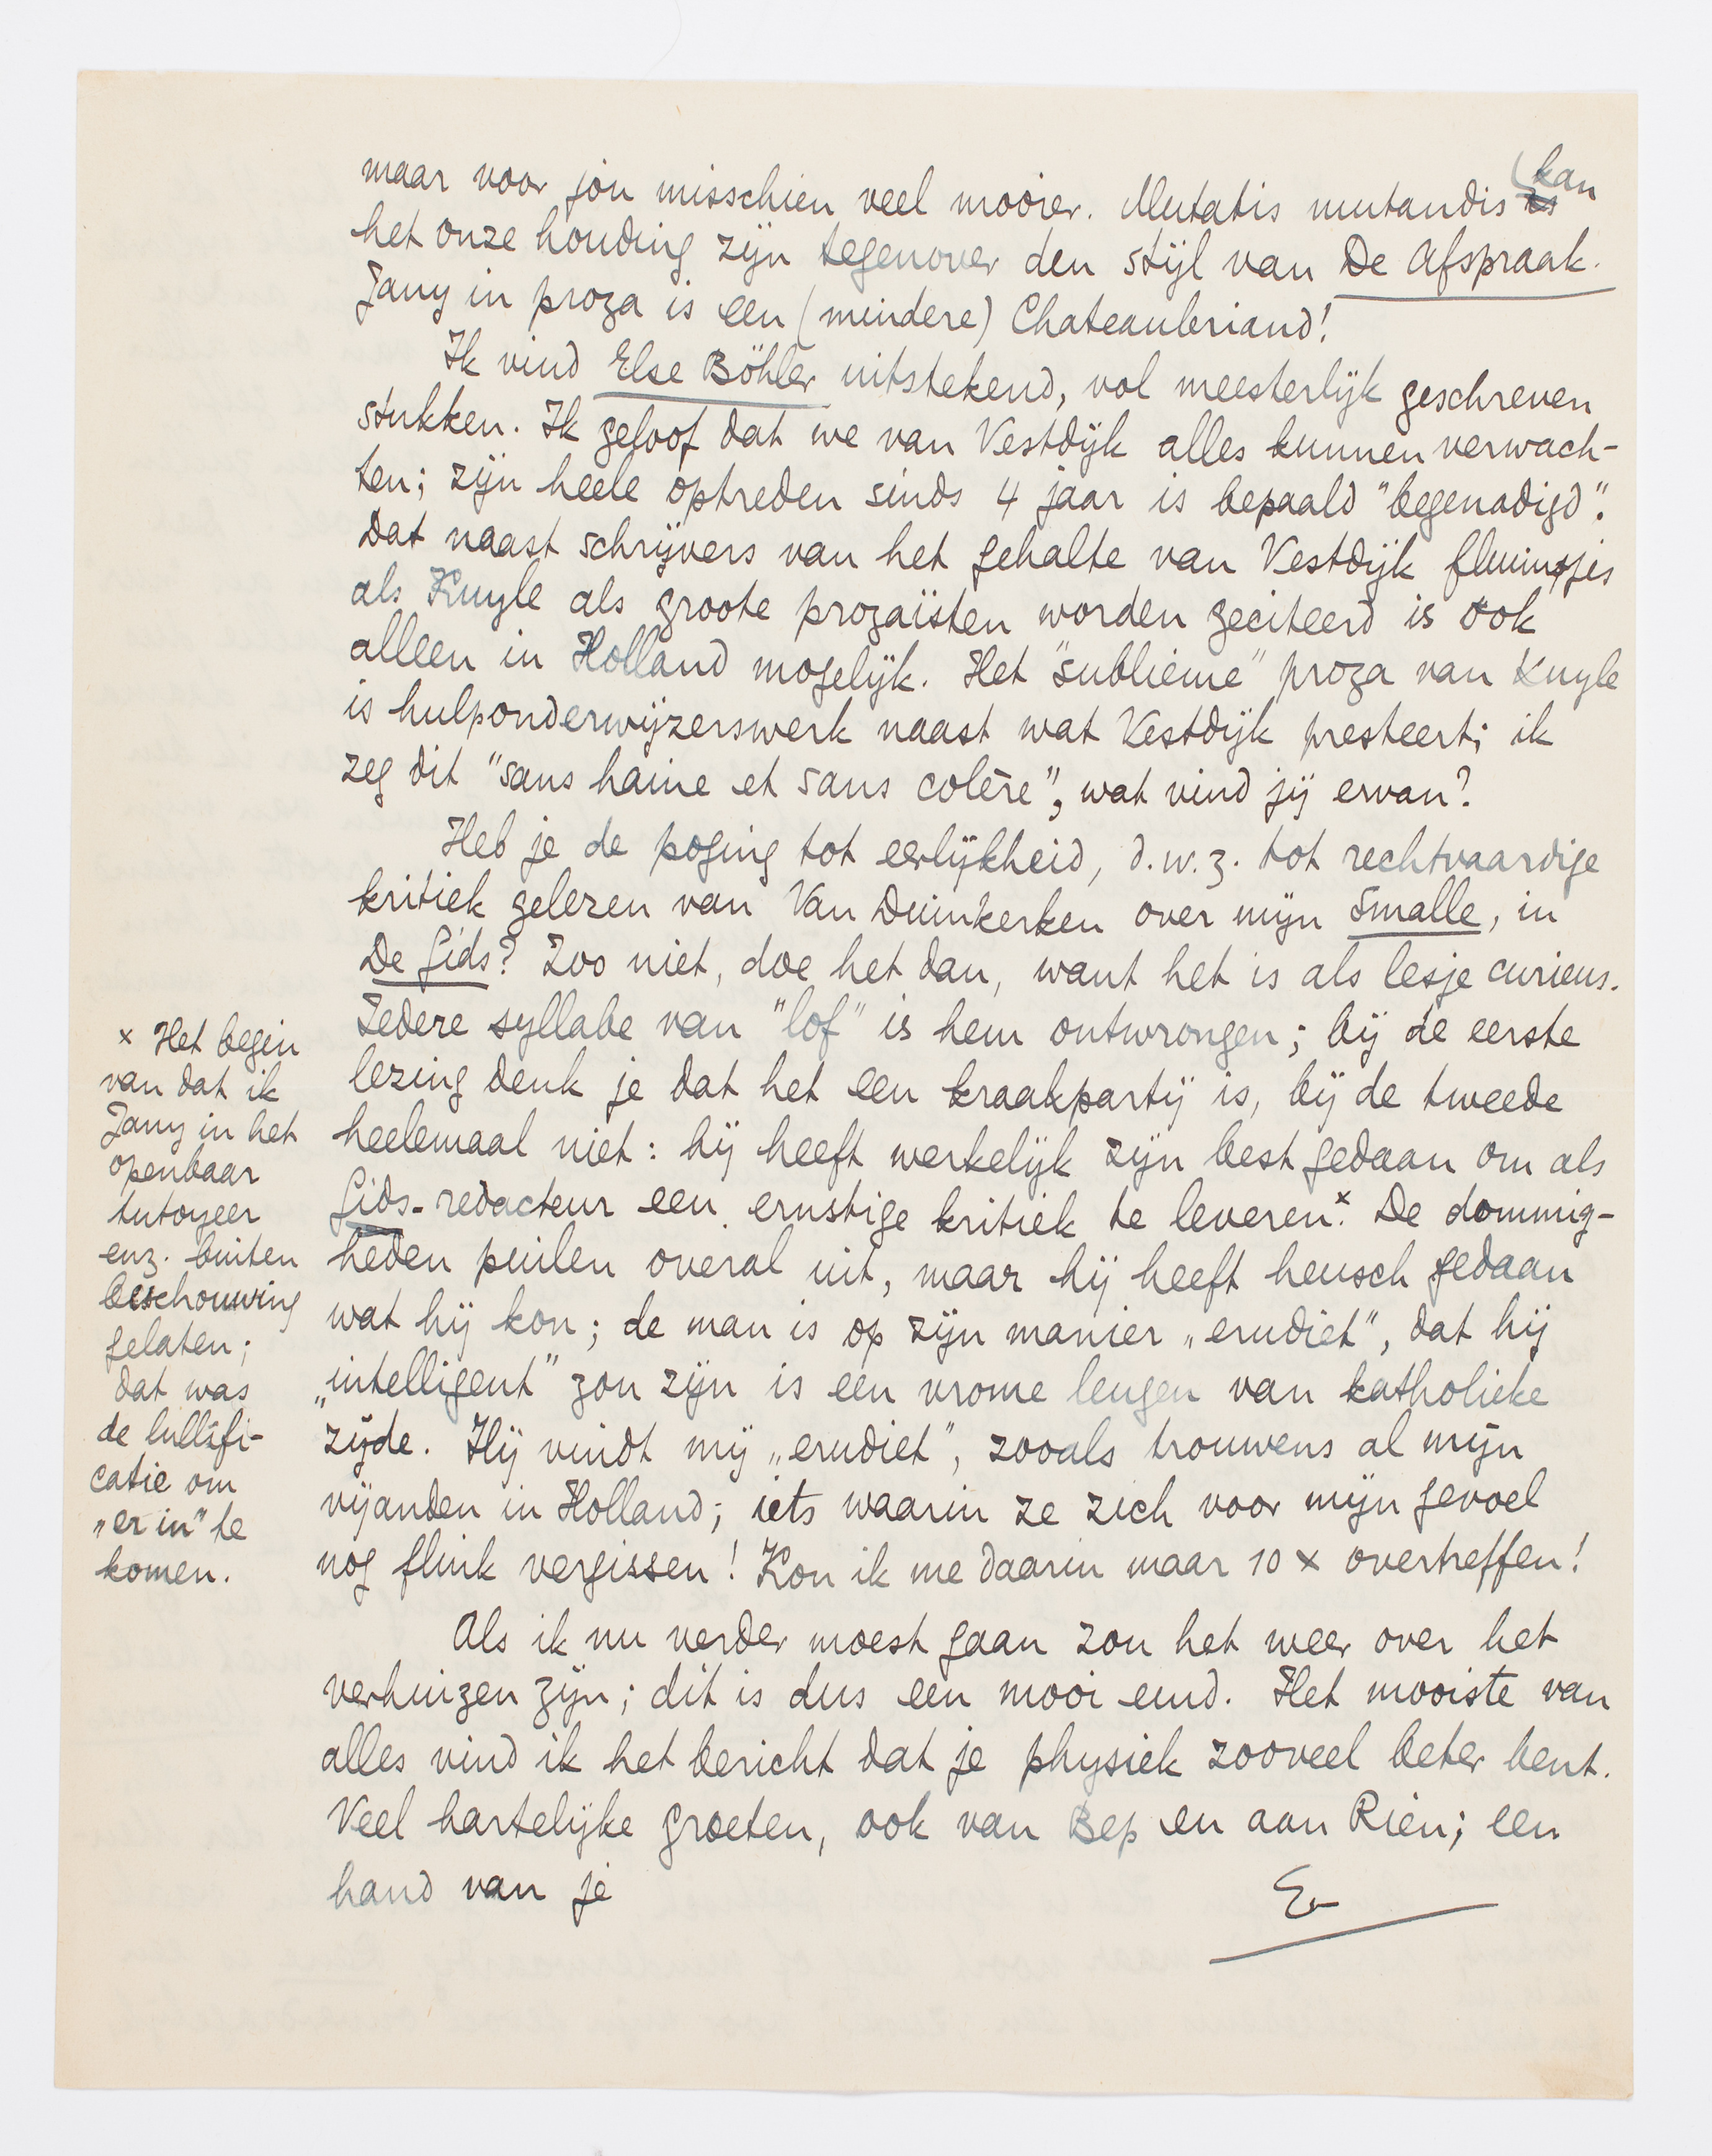 maar voor jou misschien veel mooier. Mutatis mutandis kan
het onze houding zijn tegenover den stijl van De Afspraak.
Jany in proza is een (mindere) Chateaubriand!
Ik vind Else Böhler uitstekend, vol meesterlijk geschreven
stukken. Ik geloof dat we van Vestdijk alles kunnen verwach-
ten; zijn heele optreden sinds 4 jaar is bepaald "begenadigd".
Dat naast schrijvers van het gehalte van Vestdijk fluimpjes
als Kuyle als groote prozaïsten worden geciteerd is ook
alleen in Holland mogelijk. Het "sublieme" proza van Kuyle
is hulponderwijzerswerk naast wat Vestdijk presteert; ik
zeg dit "sans haine et sans colère", wat vind jij ervan?
Heb je de poging tot eerlijkheid, d.w.z. tot rechtvaardige
kritiek gelezen van Van Duinkerken over mijn Smalle, in
De Gids? Zoo niet, doe het dan, want het is als lesje curieus.
Iedere syllabe van "lof" is hem ontwrongen; bij de eerste
lezing denk je dat het een kraakpartij is, bij de tweede
heelemaal niet: hij heeft werkelijk zijn best gedaan om als
Gids-redacteur een ernstige kritiek te leveren.x De dommig-
heden puilen overal uit, maar hij heeft heusch gedaan
wat hij kon; de man is op zijn manier „erudiet", dat hij
„intelligent" zou zijn is een vrome leugen van katholieke
zijde. Hij vindt mij „erudiet", zooals trouwens al mijn
vijanden in Holland; iets waarin ze zich voor mijn gevoel
nog flink vergissen! Kon ik me daarin maar 10 x overtreffen!
Als ik nu verder moest gaan zou het weer over het
verhuizen zijn; dit is dus een mooi eind. Het mooiste van
alles vind ik het bericht dat je physiek zooveel beter bent.
Veel hartelijke groeten, ook van Bep en aan Rien; een
hand van je
E
x Het begin
van dat ik
Jany in het
openbaar
tutoyeer
enz. buiten
beschouwing
gelaten;
dat was
de lullifi-
catie om
„er in" te
komen.